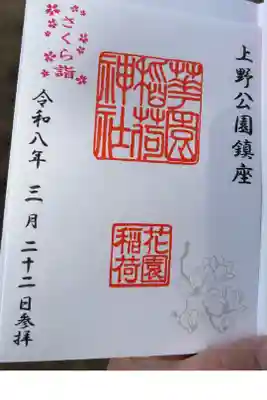 上野公園鎮座
華園
稲荷
神社
花園
稲荷
さくら詣
令和八年 三月二十二日参拝